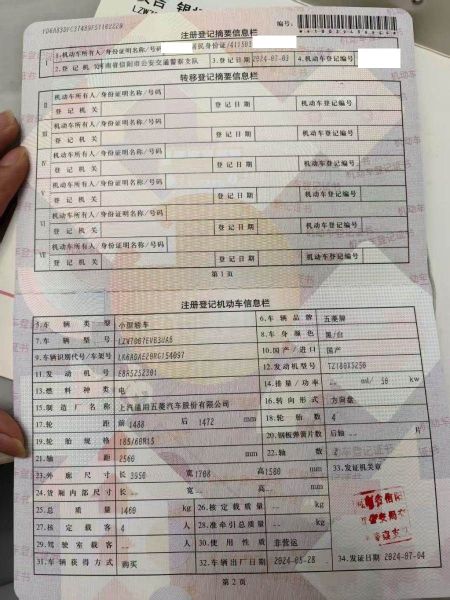 注册登记摘要信息栏
编号：
Ⅰ 1.机动车所有人/身份证明名称/号码 居民身份证/411503
2.登记机关 河南省信阳市公安交通警察支队 3.登记日期 2024-07-03 4.机动车登记编号
转移登记摘要信息栏
Ⅱ 机动车所有人/身份证明名称/号码
登记机关 登记日期 机动车登记编号
Ⅲ 机动车所有人/身份证明名称/号码
登记机关 登记日期 机动车登记编号
Ⅳ 机动车所有人/身份证明名称/号码
登记机关 登记日期 机动车登记编号
Ⅴ 机动车所有人/身份证明名称/号码
登记机关 登记日期 机动车登记编号
Ⅵ 机动车所有人/身份证明名称/号码
登记机关 登记日期 机动车登记编号
Ⅶ 机动车所有人/身份证明名称/号码
登记机关 登记日期 机动车登记编号
第1页
注册登记机动车信息栏
5.车辆类型 小型轿车 6.车辆品牌 五菱牌
7.车辆型号 8.车身颜色 黑/白
9.车辆识别代号/车架号 10.国产/进口 国产
11.发动机号 12.发动机型号
13.燃料种类 电 14.排量/功率 -- ml/ 50 kw
15.制造厂名称 上汽通用五菱汽车股份有限公司 16.转向形式 方向盘
17.轮距 前 1488 后 1472 mm 18.轮胎数 4
19.轮胎规格 185/60R15 20.钢板弹簧片数 后轴 -- 片
21.轴距 2560 mm 22.轴数 2
23.外廓尺寸 长 3950 宽 1708 高 1580 mm 33.发证机关章
24.货厢内部尺寸 长 -- 宽 -- 高 -- mm
25.总质量 1469 kg 26.核定载质量 -- kg
27.核定载客 4 人 28.准牵引总质量 -- kg
29.驾驶室载客 -- 人 30.使用性质 非营运
31.车辆获得方式 购买 32.车辆出厂日期 2024-05-28 34.发证日期 2024-07-04
第2页